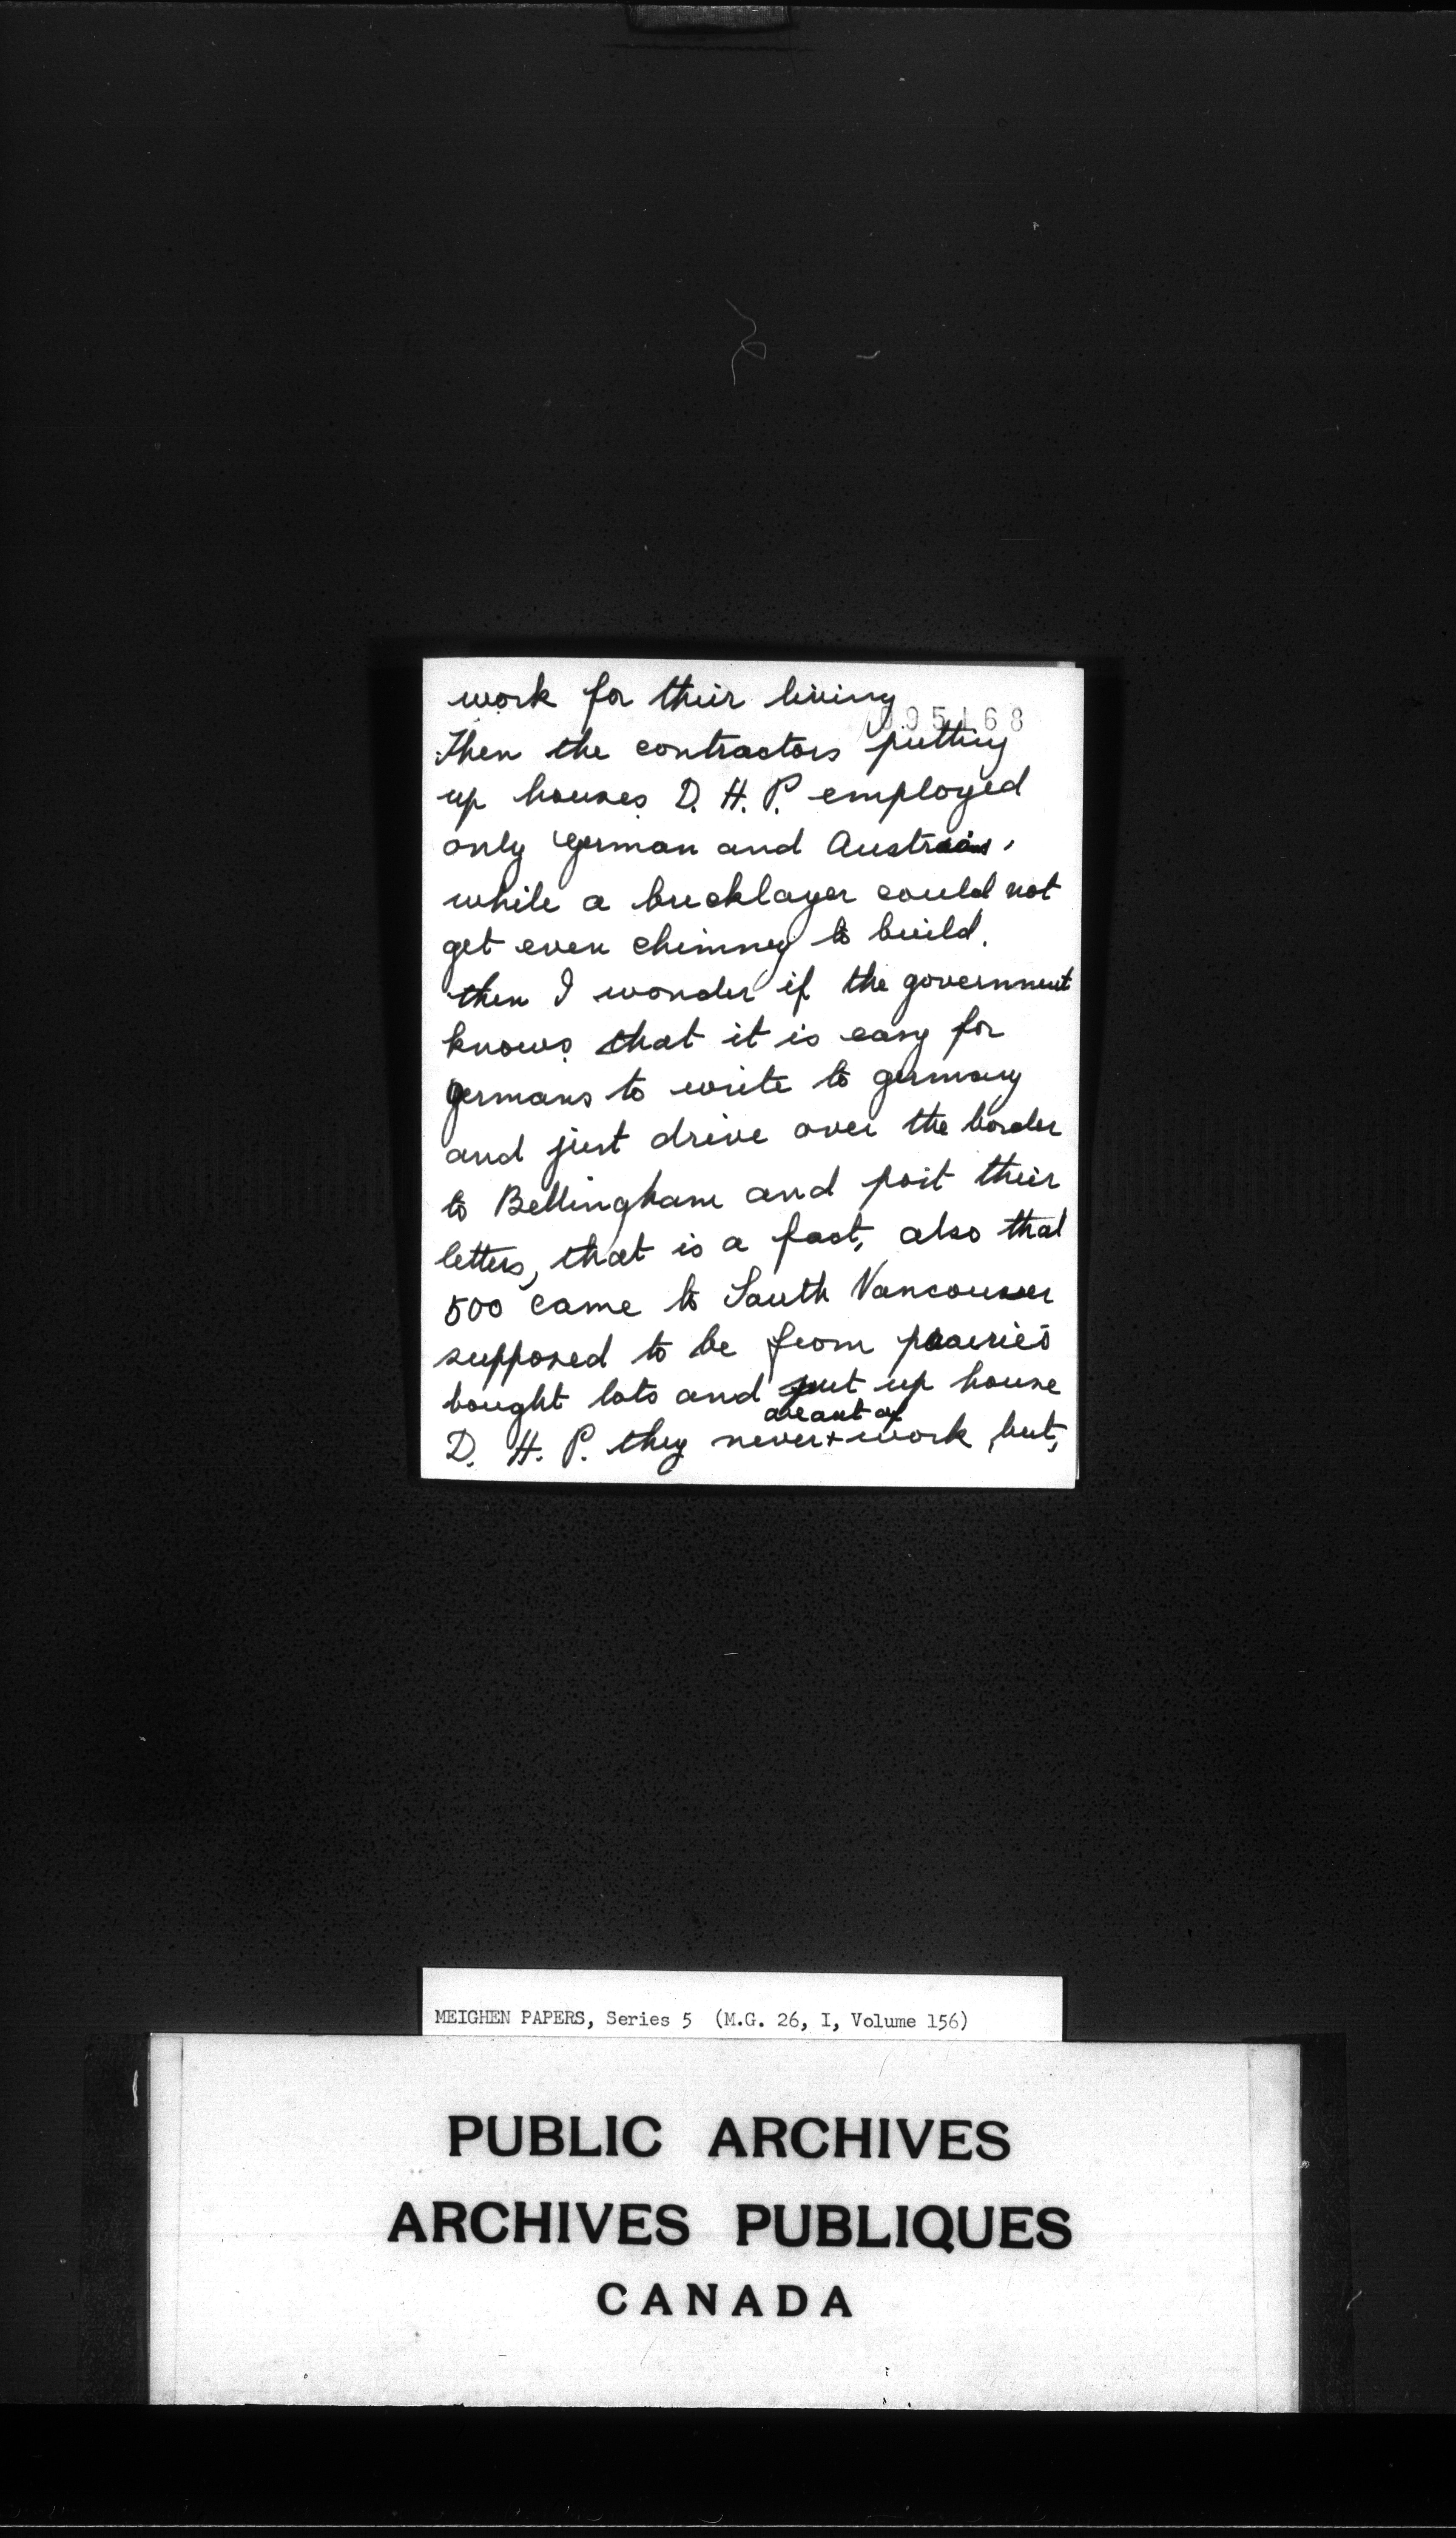 work for their living
095168
Then the contractors putting
up houses D. H. P. employed
only German and Austrain.
while a bricklayer could not
get even chimney to build.
then I wonder if the government
knows that it is easy for
germans to write to germany
and just drive over the border
to Bellingham and post their
letters, that is a fact, also that
500 came to South Vancouver
supposed to be from prairies
bought lots and put up house
are out of
D. H. P. they never + work but,
MEIGHEN PAPERS, Series 5 (M.G. 26, I, Volume 156)
PUBLIC ARCHIVES
ARCHIVES PUBLIQUES
CANADA